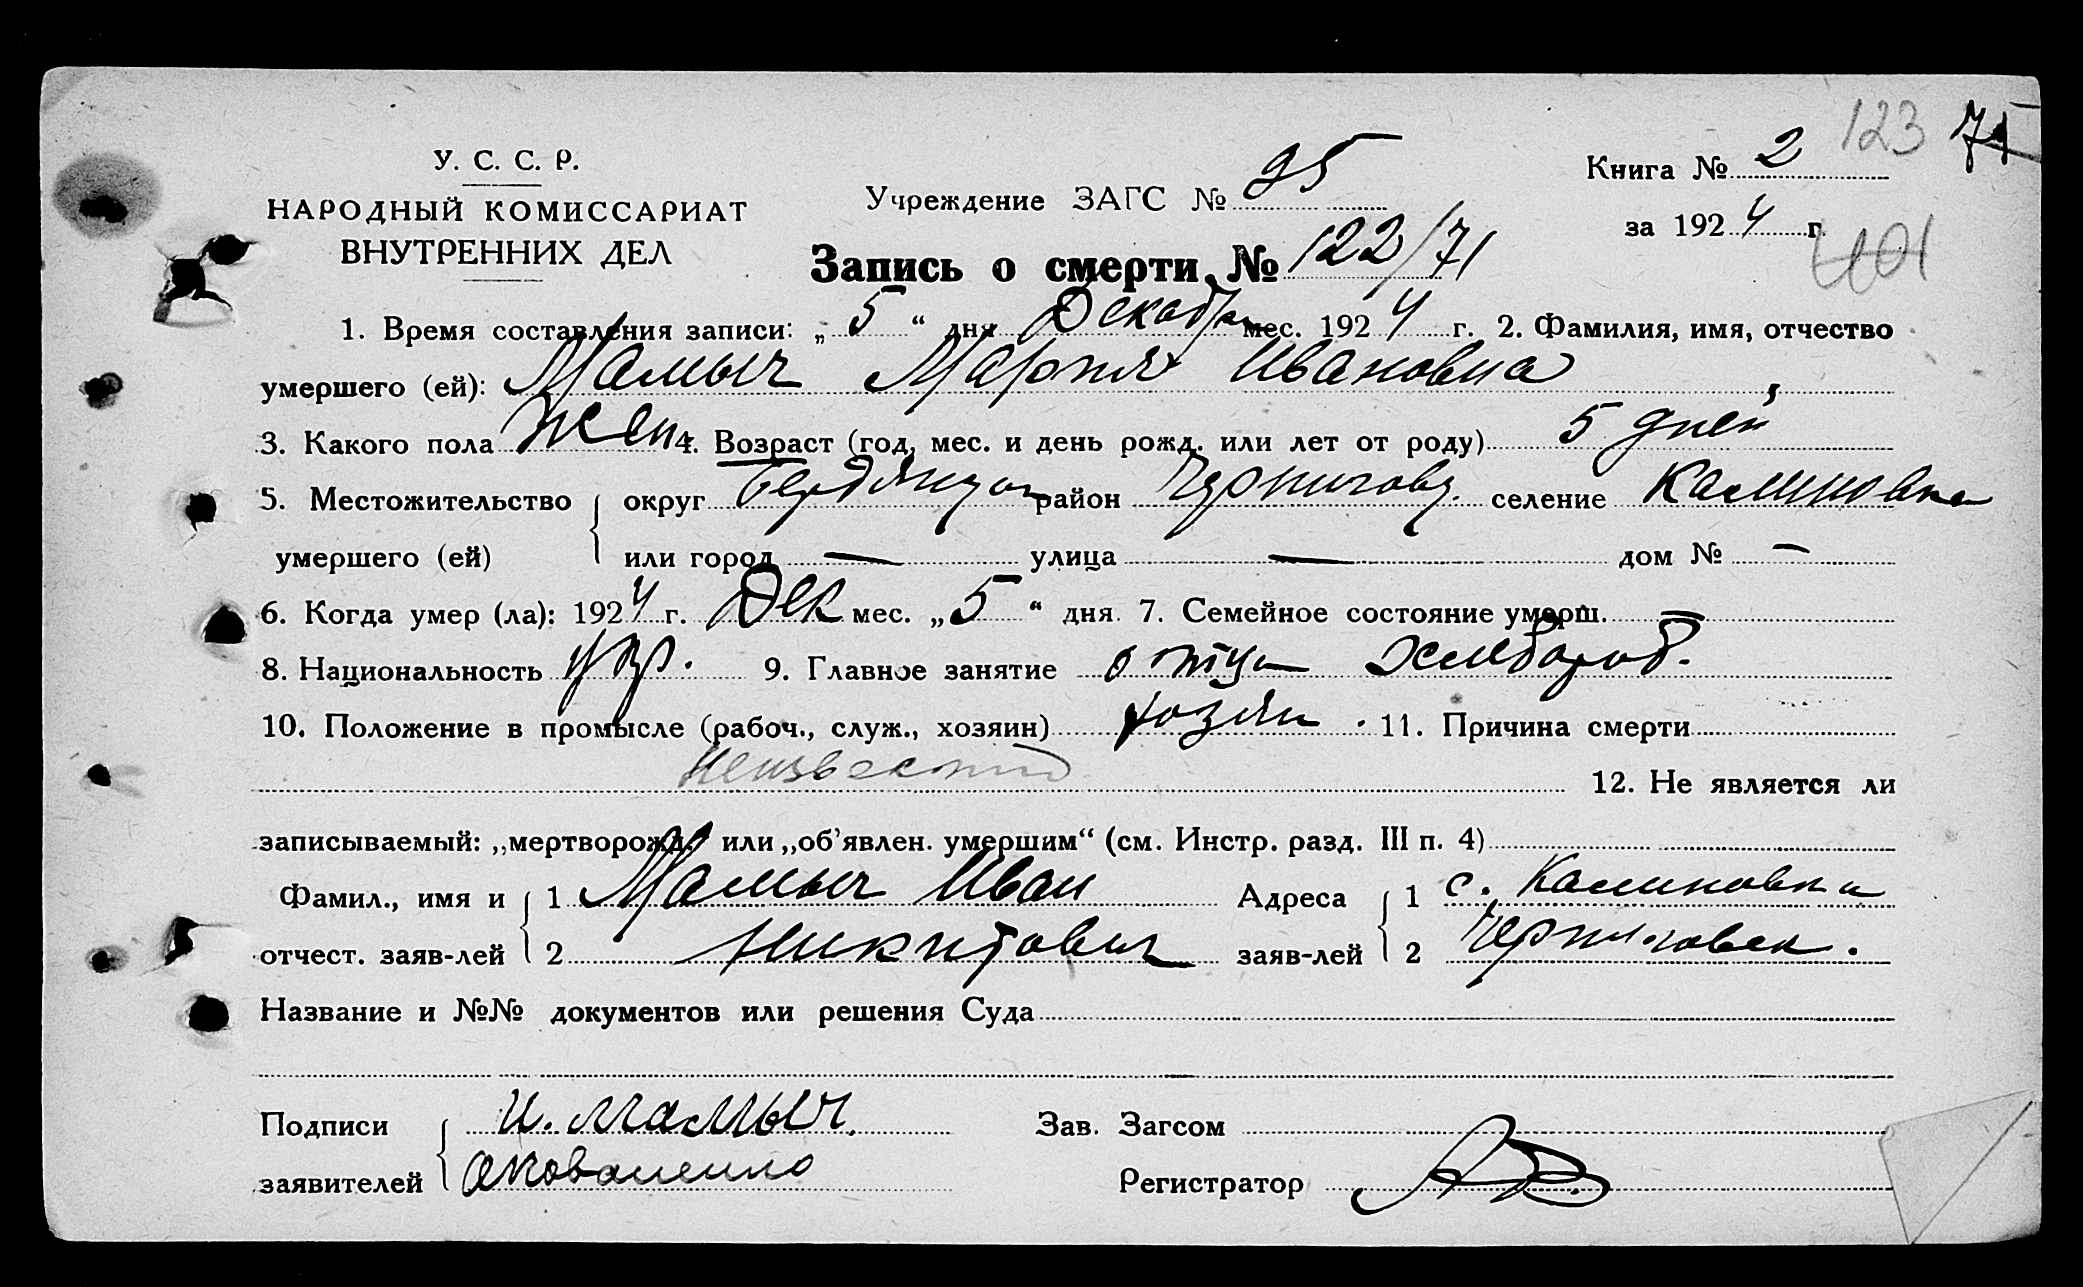 123 71
У. С. С. Р.
НАРОДНЫЙ КОМИССАРИАТ
ВНУТРЕННИХ ДЕЛ
Учреждение ЗАГС № 25
Книга № 2
за 1924 г.
401
Запись о смерти № 122/71
1. Время составления записи: „5“ дня Декабр мес. 1924 г. 2. Фамилия, имя, отчество
умершего (ей): Мамыч Мария Ивановна
3. Какого пола Жен 4. Возраст (год, мес. и день рожд. или лет от роду) 5 дней
5. Местожительство округ Бердянцон район Чернигову. селение Калиновка
умершего (ей) или город — улица — дом № —
6. Когда умер (ла): 1924 г. Дек мес. „5“ дня. 7. Семейное состояние умерш.
8. Национальность укр. 9. Главное занятие отца Хлебороб.
10. Положение в промысле (рабоч., служ., хозяин) хозяин. 11. Причина смерти
Неизвестно 12. Не является ли
записываемый: „мертворожд.“ или „об’явлен. умершим“ (см. Инстр. разд. III п. 4)
Фамил., имя и 1 Мамыч Иван Адреса 1 с. Калиновка
отчест. заяв-лей 2 Никитович заяв-лей 2 Черниговск.
Название и №№ документов или решения Суда
Подписи И. Мамыч. Зав. Загсом
заявителей Регистратор